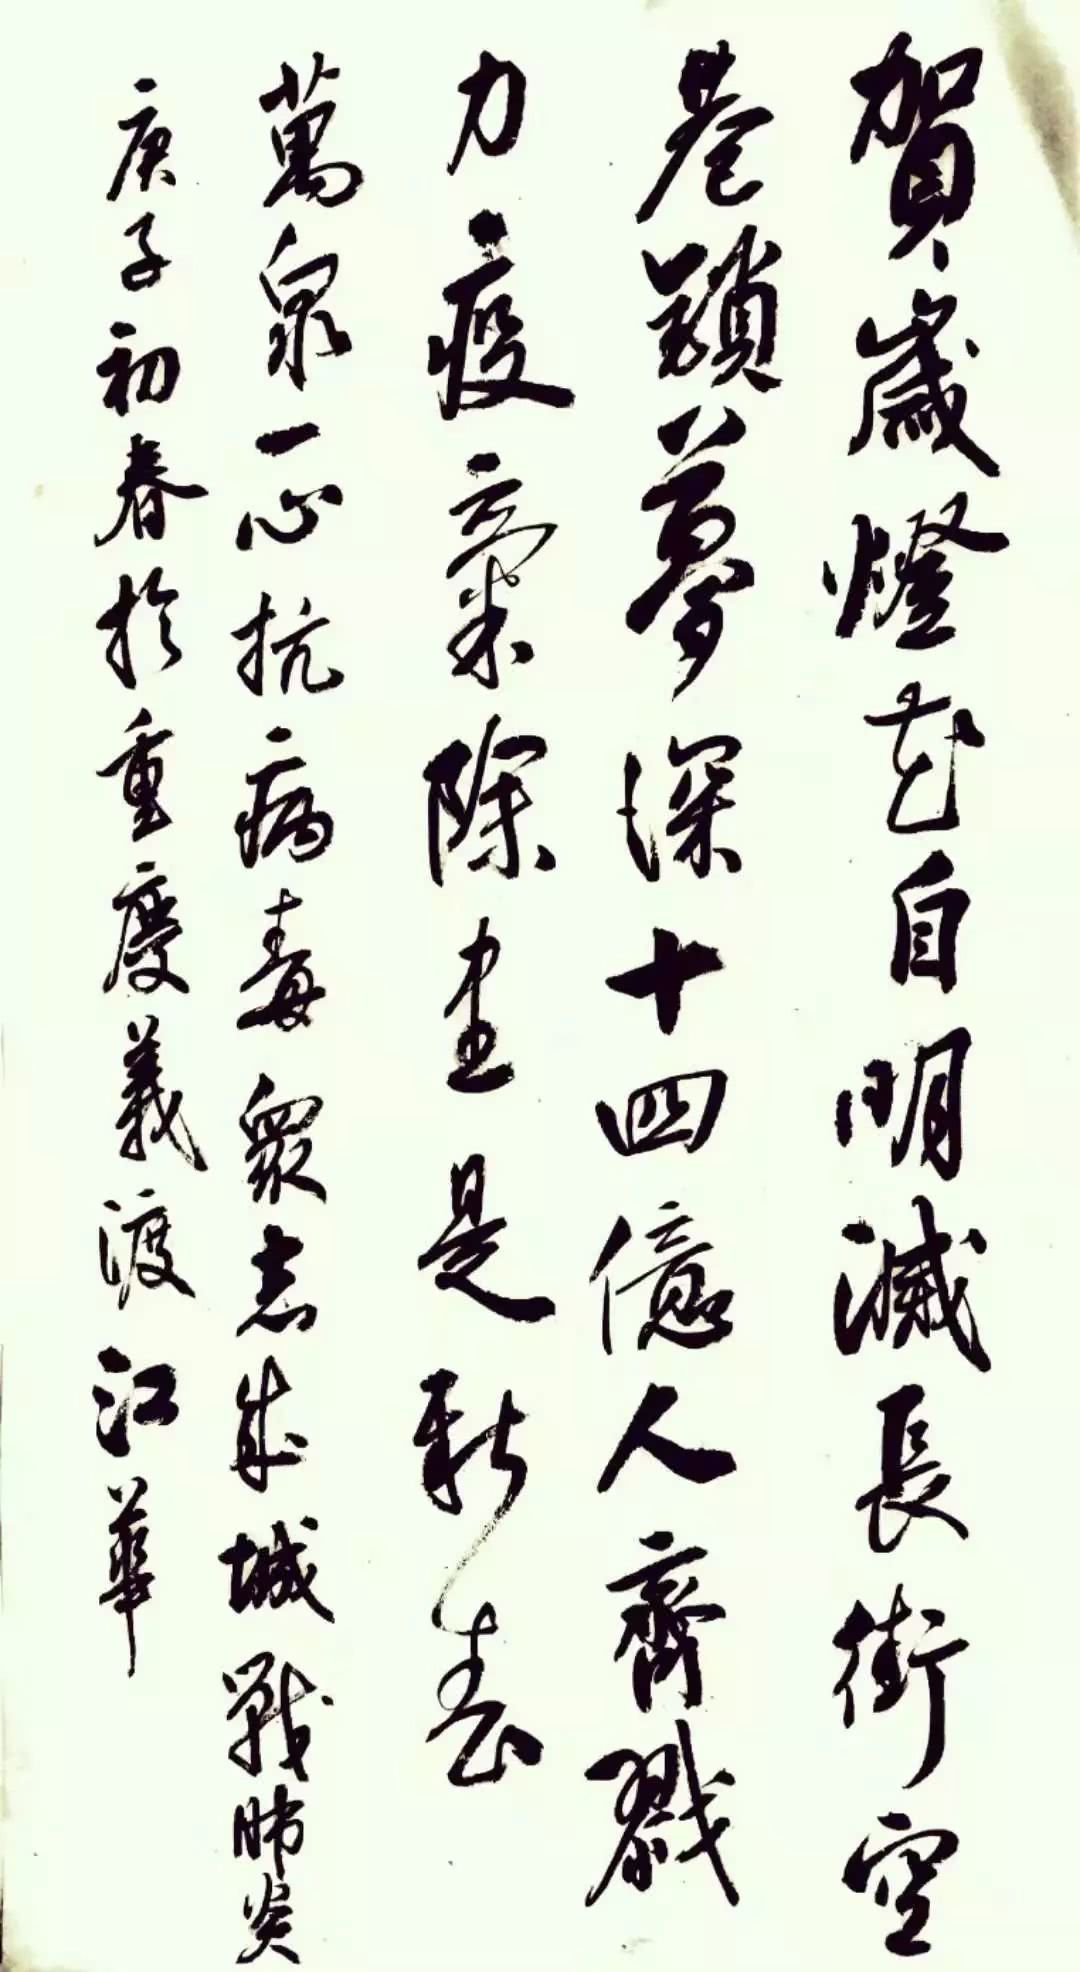 賀歲燈花自明滅長街空
巷鎖夢深十四億人齊戮
力疫氣除盡是新春
萬衆一心抗病毒眾志成城戰肺炎
庚子初春於重慶義渡江華